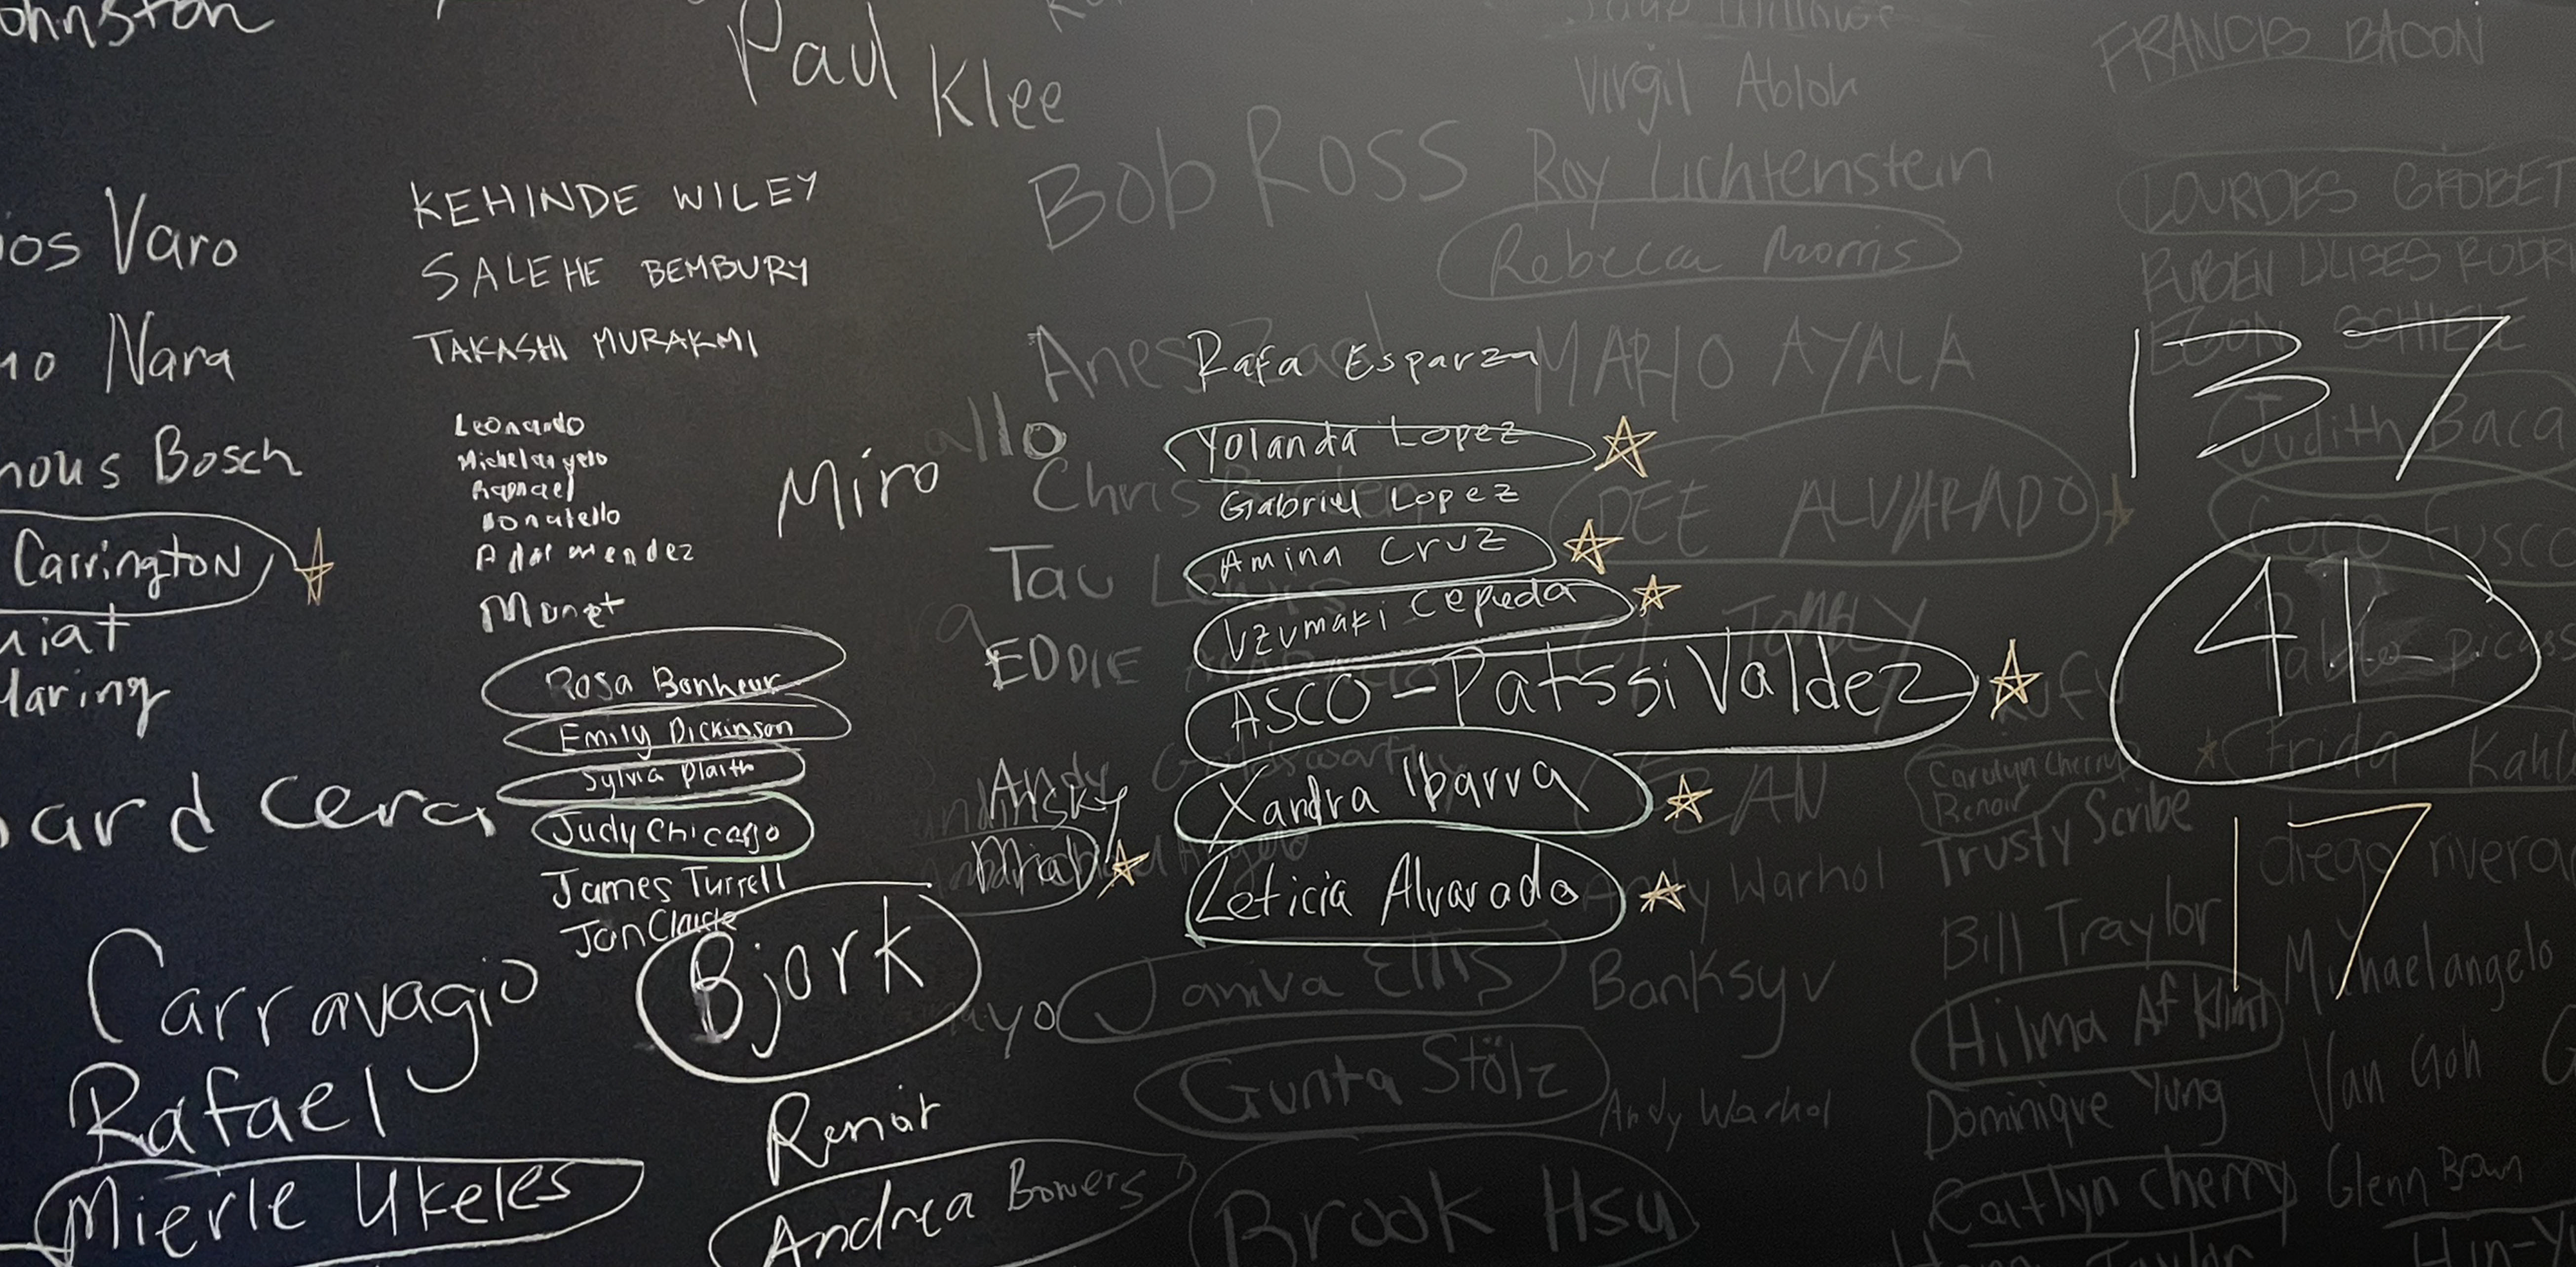 ohnston
Paul Klee
Virgil Abloh
FRANCIS BACON
Bob Ross
Roy Lichtenstein
Rebecca Morris
KEHINDE WILEY
SALEHE BEMBURY
TAKASHI MURAKMI
ios Varo
Nara
Bosch
Carrington
uiat
Haring
ard cera
Leonardo
Michelangelo
Raphael
Donatello
mendez
Monet
Rosa Bonheur
Emily Dickinson
Sylvia Plaith
Judy Chicago
James Turrell
Jan Claude
Miro
allo
Carravagio
Rafael
Mierle Ukeles
Bjork
Renoir
Andrea Bowers
Rafa Esparza
Yolanda Lopez
Gabriel Lopez
Amina Cruz
Uzumaki Cepeda
ASCO - Patssi Valdez
Xandra Ibarra
Leticia Alvarado
Chris
Tau Lewis
EDDIE
Andy
MARIO AYALA
DEE ALVARADO
Janiva Ellis
Gunta Stölz
Brook Hsu
Andy Warhol
Banksy
Andy Warhol
LOURDES GROBET
RUBEN ULISES RODRI
EGON SCHIELE
137
Judith Baca
Coco Fusco
41
Pablo picass
Frida Kahl
17
diego rivera
Carolyn Cherry
Renoir
Trusty Scribe
Bill Traylor
Hilma Af Klint
Dominique Yung
Caitlyn cherry
Michaelangelo
Van Goh
Glenn Brown
Taylor